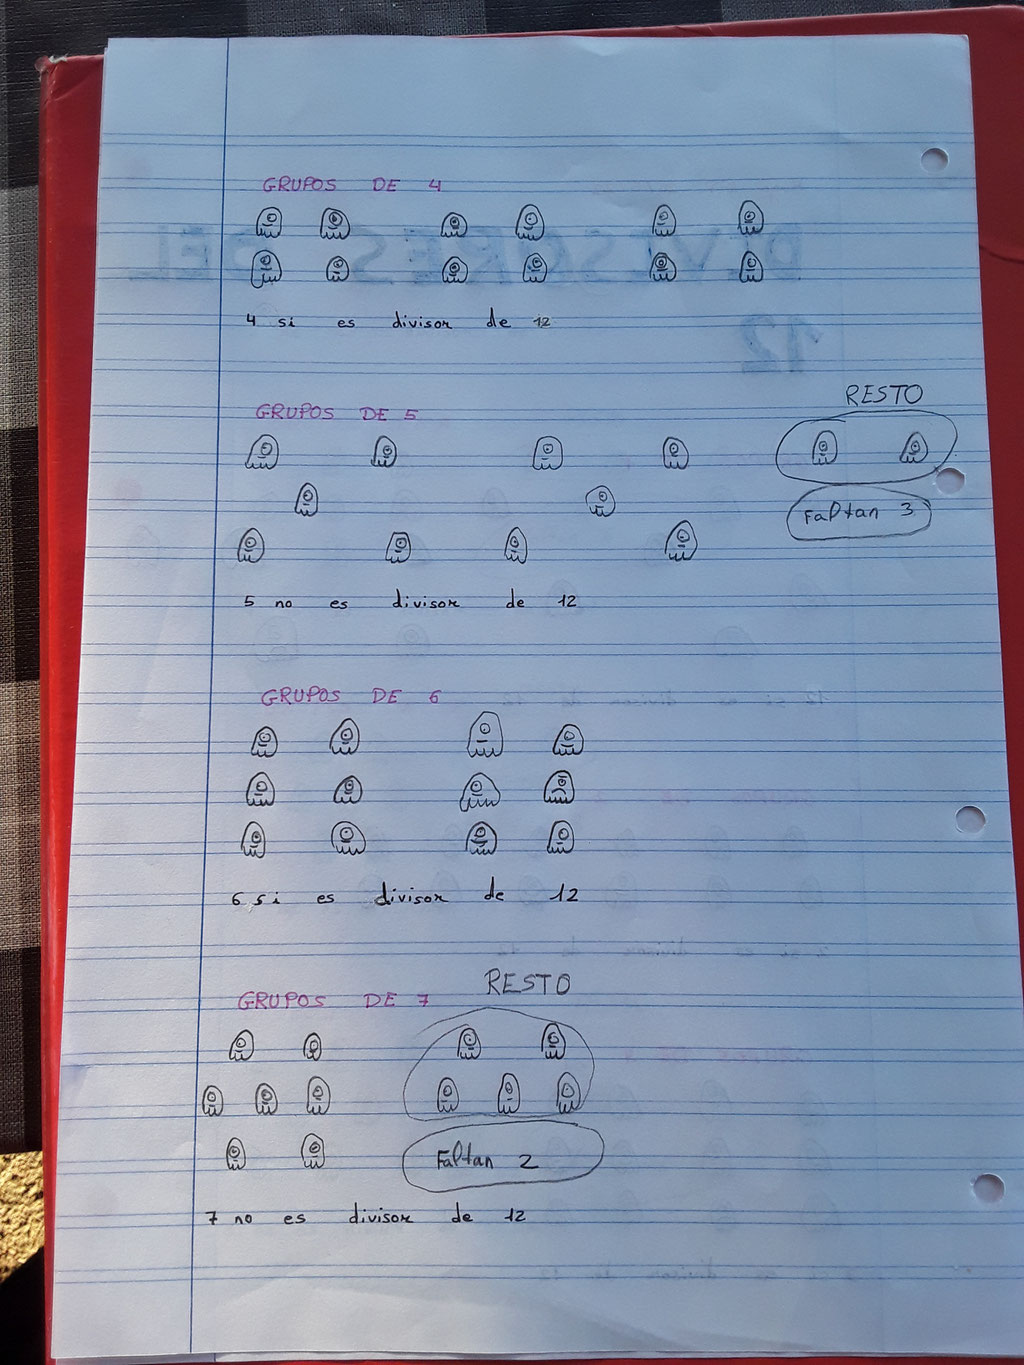 GRUPOS DE 4
4 si es divisor de 12
GRUPOS DE 5
RESTO
Faltan 3
5 no es divisor de 12
GRUPOS DE 6
6 si es divisor de 12
GRUPOS DE 7
RESTO
Faltan 2
7 no es divisor de 12